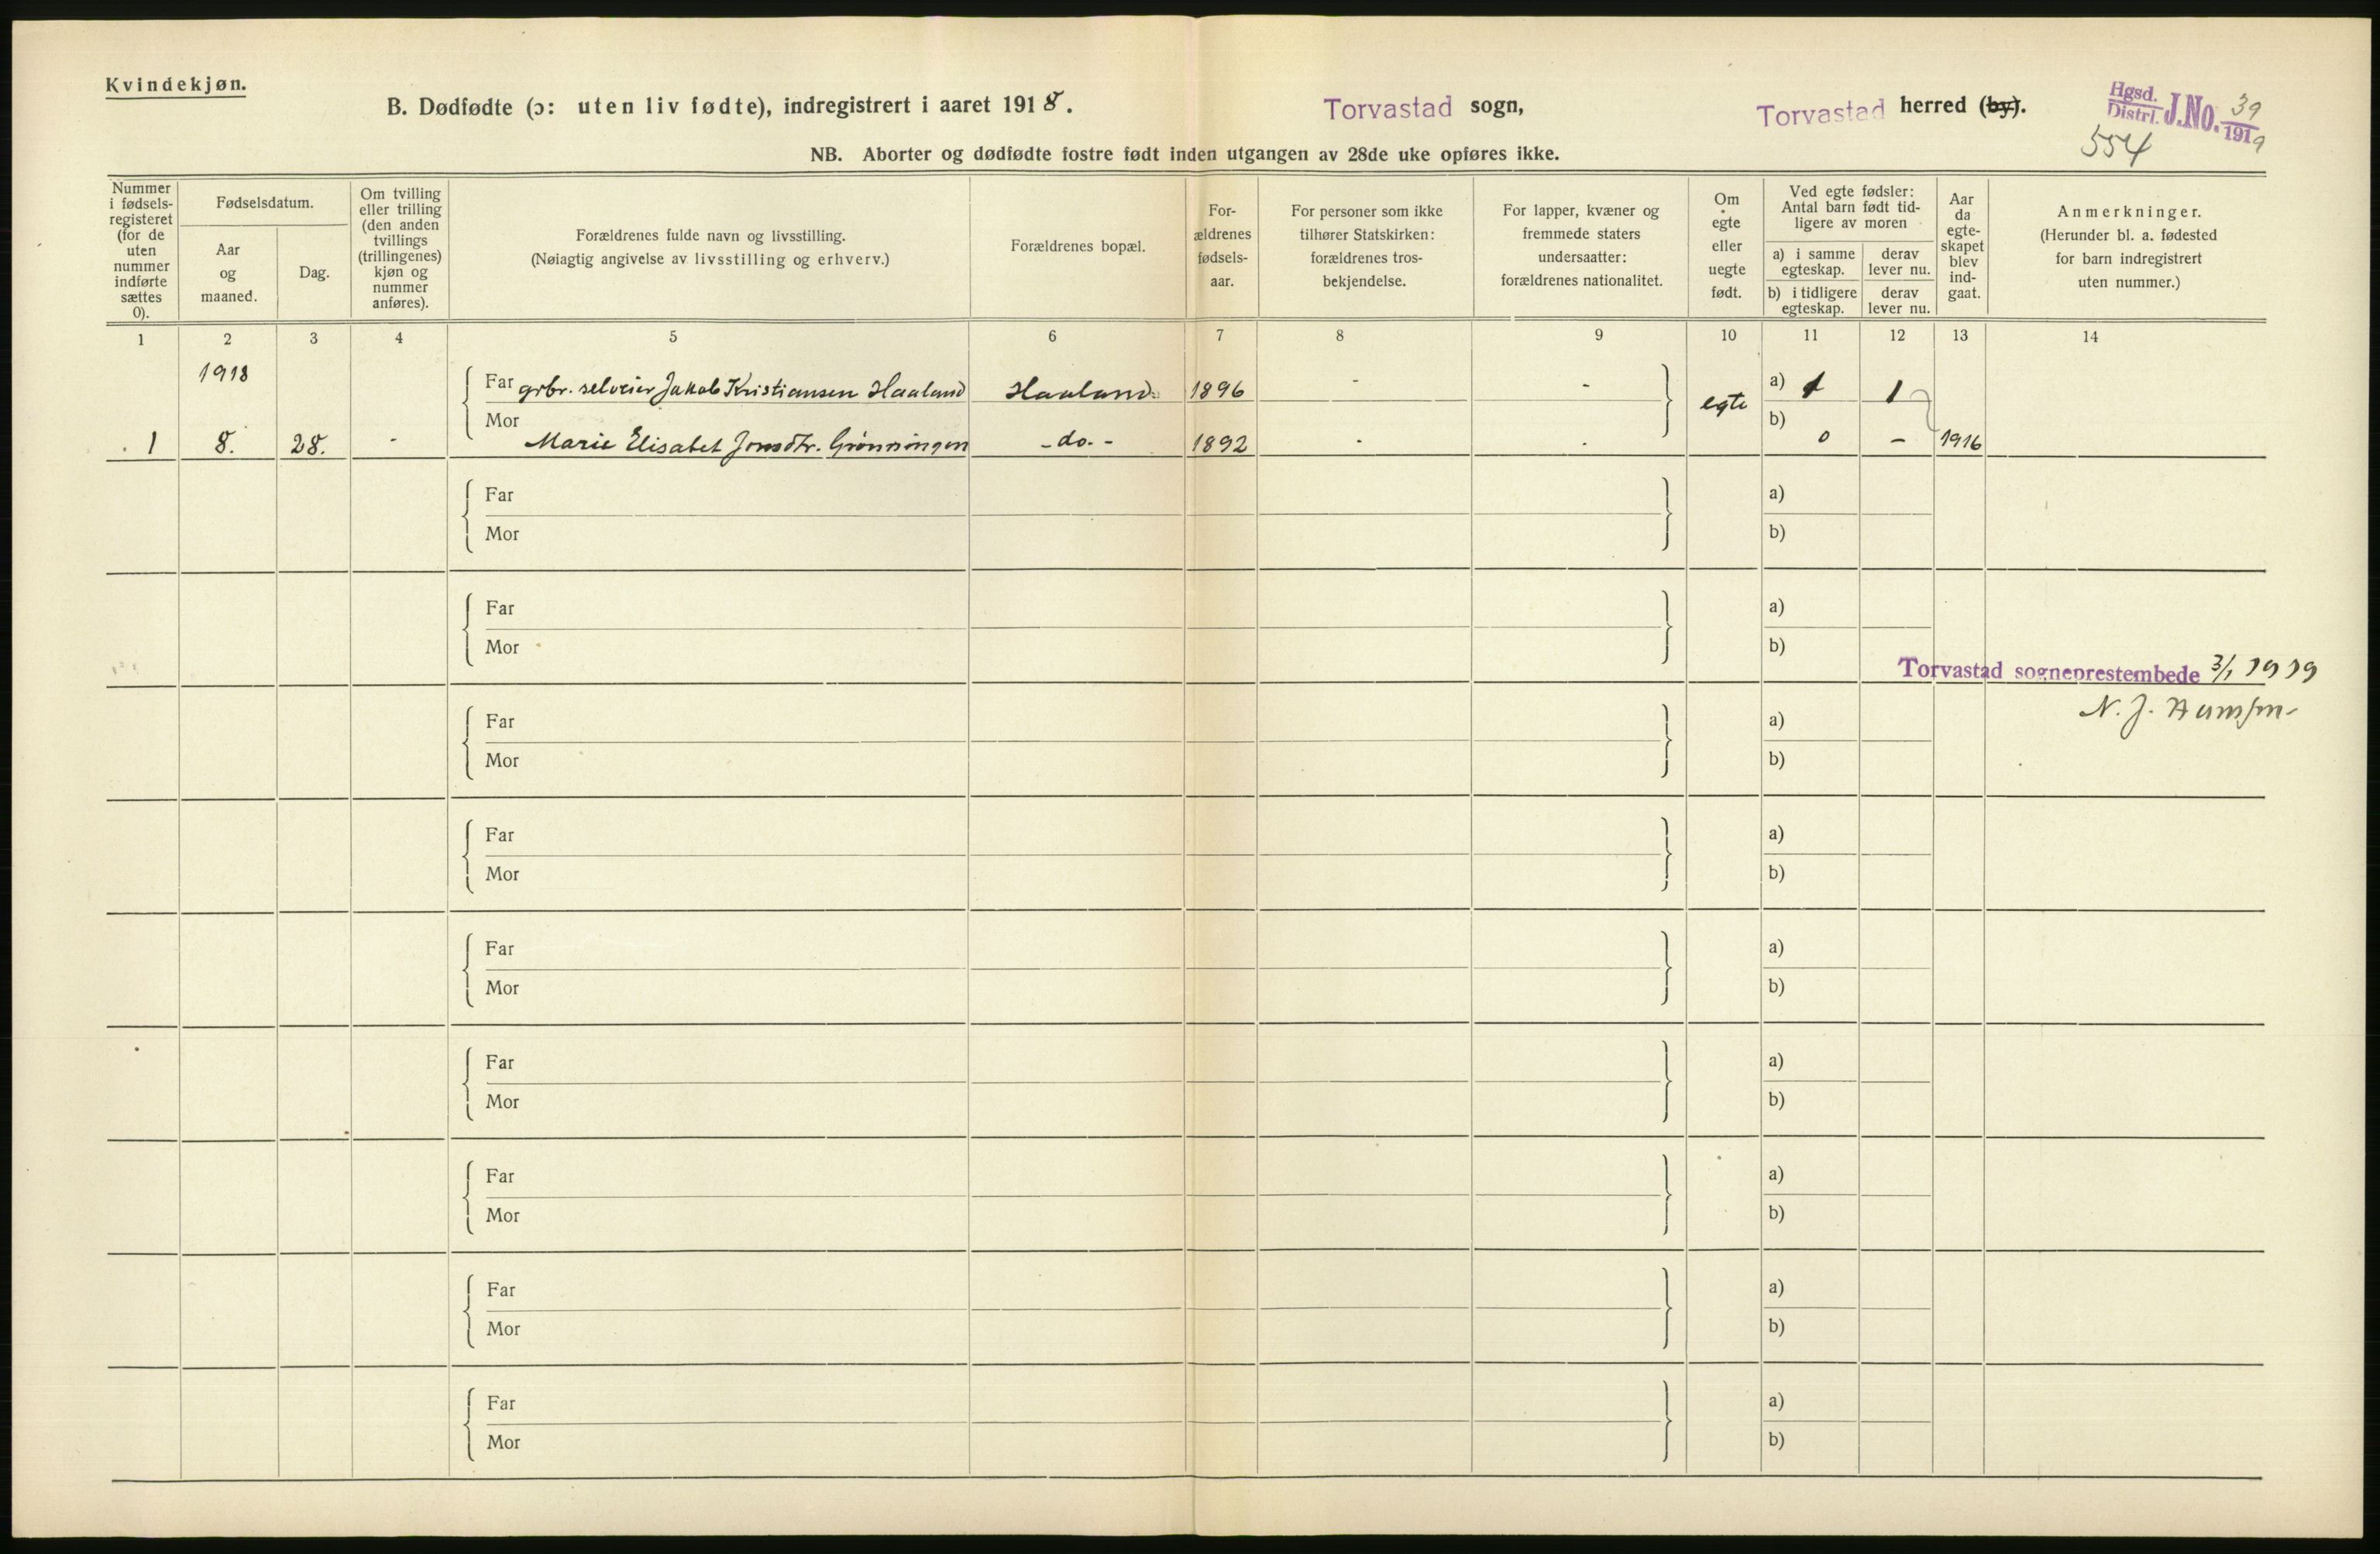 Kvindekjøn.
B. Dødfødte (ɔ: uten liv fødte), indregistrert i aaret 1918.
Torvastad sogn,
Torvastad herred (by).
Hgsd. Distrl. J.No. 39 1919
554
NB. Aborter og dødfødte fostre født inden utgangen av 28de uke opføres ikke.
Nummer
i fødsels-
registeret
(for de
uten
nummer
indførte
sættes
0).
Fødselsdatum.
Aar
og
maaned.
Dag.
Om tvilling
eller trilling
(den anden
tvillings
(trillingenes)
kjøn og
nummer
anføres).
Forældrenes fulde navn og livsstilling.
(Nøiagtig angivelse av livsstilling og erhverv.)
Forældrenes bopæl.
For-
ældrenes
fødsels-
aar.
For personer som ikke
tilhører Statskirken:
forældrenes tros-
bekjendelse.
For lapper, kvæner og
fremmede staters
undersaatter:
forældrenes nationalitet.
Om
egte
eller
uegte
født.
Ved egte fødsler:
Antal barn født tid-
ligere av moren
a) i samme
egteskap.
derav
lever nu.
b) i tidligere
egteskap.
derav
lever nu.
Aar
da
egte-
skapet
blev
ind-
gaat.
Anmerkninger.
(Herunder bl. a. fødested
for barn indregistrert
uten nummer.)
1 2 3 4 5 6 7 8 9 10 11 12 13 14
1918
Far grbr. selveier Jakob Kristiansen Haaland Haaland 1896 - - egte a) 1 1
1 8. 28. - Mor Marie Elisabet Jonsdtr. Grønningen - do. - 1892 - - b) 0 - 1916
Far a)
Mor b)
Far a)
Mor b)
Torvastad sogneprestembede 3/1 1919
N. J.
Far a)
Mor b)
Far a)
Mor b)
Far a)
Mor b)
Far a)
Mor b)
Far a)
Mor b)
Far a)
Mor b)
Far a)
Mor b)